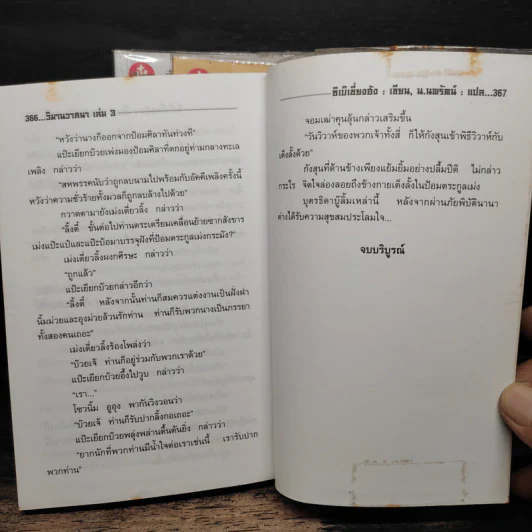 366...วิมานวาสนา เล่ม 3
"หวังว่านางก็ออกจากป้อมศิลาทันท่วงที"
แป๊ะเยียกบ๊วยเพ่งมองป้อมศิลาที่ตกอยู่ท่ามกลางทะเล
เพลิง กล่าวว่า
"สหพรรคนับว่าถูกลบนามไปพร้อมกับอัคคีเพลิงครั้งนี้
หวังว่าความชั่วร้ายทั้งมวลก็ถูกลบล้างไปด้วย"
กวาดตามายังเม่งเตี่ยวลิ้ง กล่าวว่า
"ลิ้งตี๋ ขั้นต่อไปท่านตระเตรียมเคลื่อนย้ายซากสังขาร
เม่งแป๊ะแป้และแป๊ะบ้อมาบรรจุฝังที่ป้อมตระกูลเม่งกระมัง?"
เม่งเตี่ยวลิ้งผงกศีรษะ กล่าวว่า
"ถูกแล้ว"
แป๊ะเยียกบ๊วยกล่าวอีกว่า
"ลิ้งตี๋ หลังจากนั้นท่านก็สมควรแต่งงานเป็นฝั่งฝา
นิ้มม่วยและอุงม่วยล้วนรักท่าน ท่านก็รับพวกนางเป็นภรรยา
ทั้งสองคนเถอะ"
เม่งเตี่ยวลิ้งร้องโพล่งว่า
"บ๊วยเจ้ ท่านก็อยู่ร่วมกับพวกเราด้วย"
แป๊ะเยียกบ๊วยอึ้งไปวูบ กล่าวว่า
"เรา..."
โซวนิ้ม อูอุง พากันวิงวอนว่า
"บ๊วยเจ้ ท่านก็รับปากลิ้งกอเถอะ"
แป๊ะเยียกบ๊วยพลุ่งพล่านตื้นตันยิ่ง กล่าวว่า
"ยากนักที่พวกท่านมีน้ำใจต่อเราเช่นนี้ เรารับปาก
พวกท่าน"
อิเป๊เยี่ยงฮ้ง : เขียน, น.นพรัตน์ : แปล...367
จอมเฒ่าคุนลุ้นกล่าวเสริมขึ้น
"วันวิวาห์ของพวกเจ้าทั้งสี่ ก็ให้กังสุนเข้าพิธีวิวาห์กับ
เต็งลั้งด้วย"
กังสุนที่ด้านข้างเพียงแย้มยิ้มอย่างปลื้มปีติ ไม่กล่าว
กระไร จิตใจล่องลอยถึงข้างกายเต็งลั้งในป้อมตระกูลเม่ง
บุตรธิดาบู๊ลิ้มเหล่านี้ หลังจากผ่านภัยพิบัตินานา
ต่างได้รับความสุขสมประโลมใจ...
จบบริบูรณ์